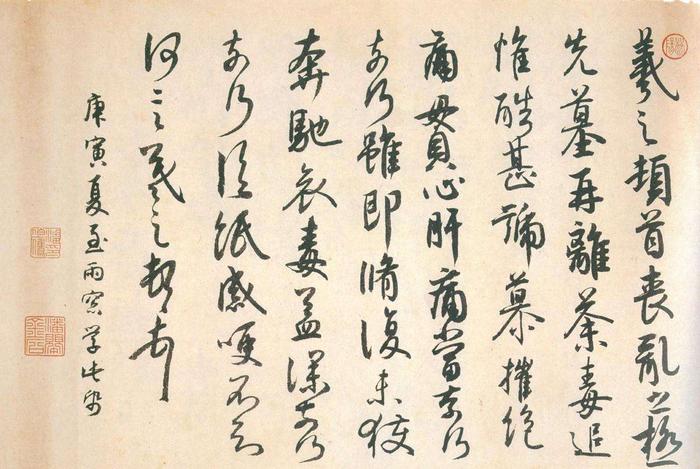 羲之頓首喪亂之極
先墓再離荼毒追
惟酷甚號慕摧絶
痛貫心肝痛當奈何
奈何雖即脩復未獲
奔馳哀毒益深奈何
奈何臨紙感哽不知
何言羲之頓首頓首
庚寅夏至雨窗學此帋